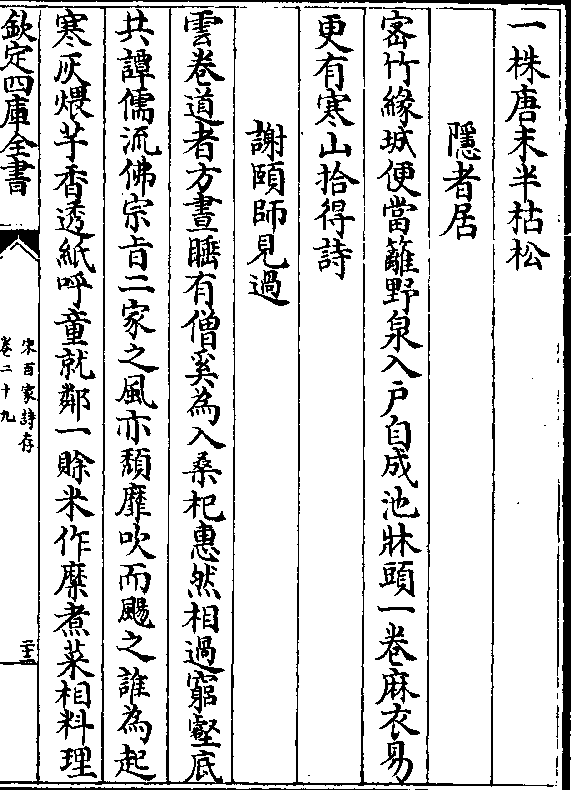 一株唐末半枯松
隱者居
宻竹緣城便當籬野泉入戸自成池牀頭一卷麻衣易
更有寒山拾得詩
謝頤師見過
雲卷道者方晝睡有僧奚為入桑杞惠然相過窮壑底
共譚儒流佛宗㫖二家之風亦頽靡吹而颺之誰為起
寒灰煨芋香透紙呼童就鄰一賖米作糜煮菜相料理
欽定四庫全書
宋百家詩存
卷二十九
二十三